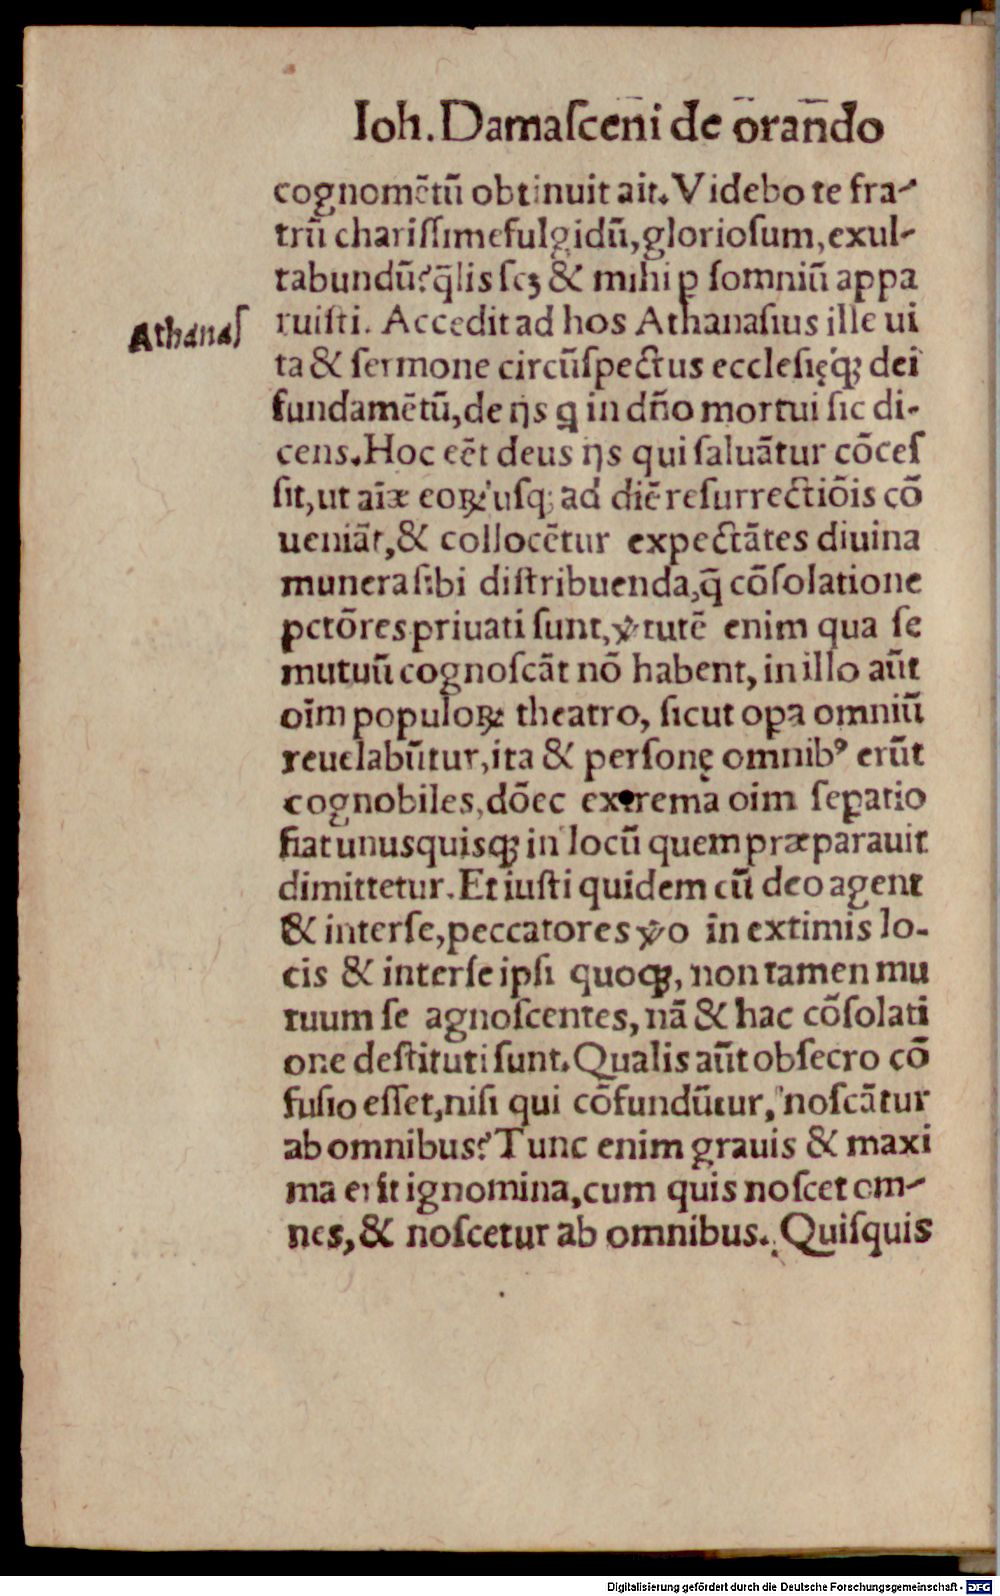 Ioh. Damascēni de ōrando
cognomētū obtinuit ait. Videbo te fra-
trū charissime fulgidū, gloriosum, exul-
tabundū? q̄lis scꝫ & mihi ꝑ somniū appa
ruisti. Accedit ad hos Athanasius ille ui
Athanaſ
ta & sermone circūspectus ecclesięqꝫ dei
fundamētū, de ijs q in dño mortui sic di-
cens. Hoc eēt deus ijs qui saluātur cōces
sit, ut aīæ eoꝝ usqꝫ ad diē resurrectiōis cō
ueniāt, & collocētur expectātes diuina
munera sibi distribuenda, q̄ cōsolatione
pctōres priuati sunt, ꝟtutē enim qua se
mutuū cognoscāt nō habent, in illo aūt
oīm populoꝝ theatro, sicut opa omniū
reuelabūtur, ita & personę omnibꝰ erūt
cognobiles, dōec extrema oīm seꝑatio
fiat unusquisqꝫ in locū quem præparauit
dimittetur. Et iusti quidem cū deo agent
& inter se, peccatores ꝟo in extimis lo-
cis & inter se ipsi quoqꝫ, non tamen mu
tuum se agnoscentes, nā & hac cōsolati
one destituti sunt. Qualis aūt obsecro cō
fusio esset, nisi qui cōfundūtur, noscātur
ab omnibus? Tunc enim grauis & maxi
ma erit ignomina, cum quis noscet om-
nes, & noscetur ab omnibus. Quisquis
Digitalisierung gefördert durch die Deutsche Forschungsgemeinschaft - DFG